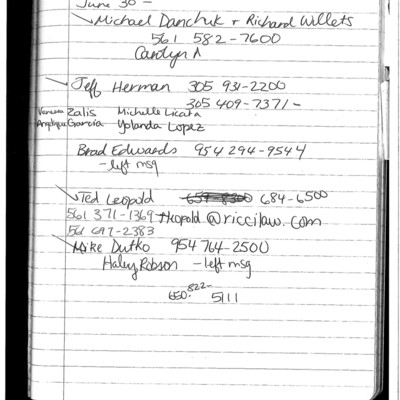 June 30 —
Michael Danchuk + Richard Willets
561 582-7600
Carolyn A
Jeff Herman 305 931-2200
305 409-7371-
Vanessa Zalis Michelle Licata
Angelique Garcia Yolanda Lopez
Brad Edwards 954 294-9544
- left msg
Ted Leopold 684-6500
561 371-1369 tleopold@riccilaw.com
561 697-2383
Mike Dutko 954 764-2500
Haley Robson - left msg
822-
650- 5111